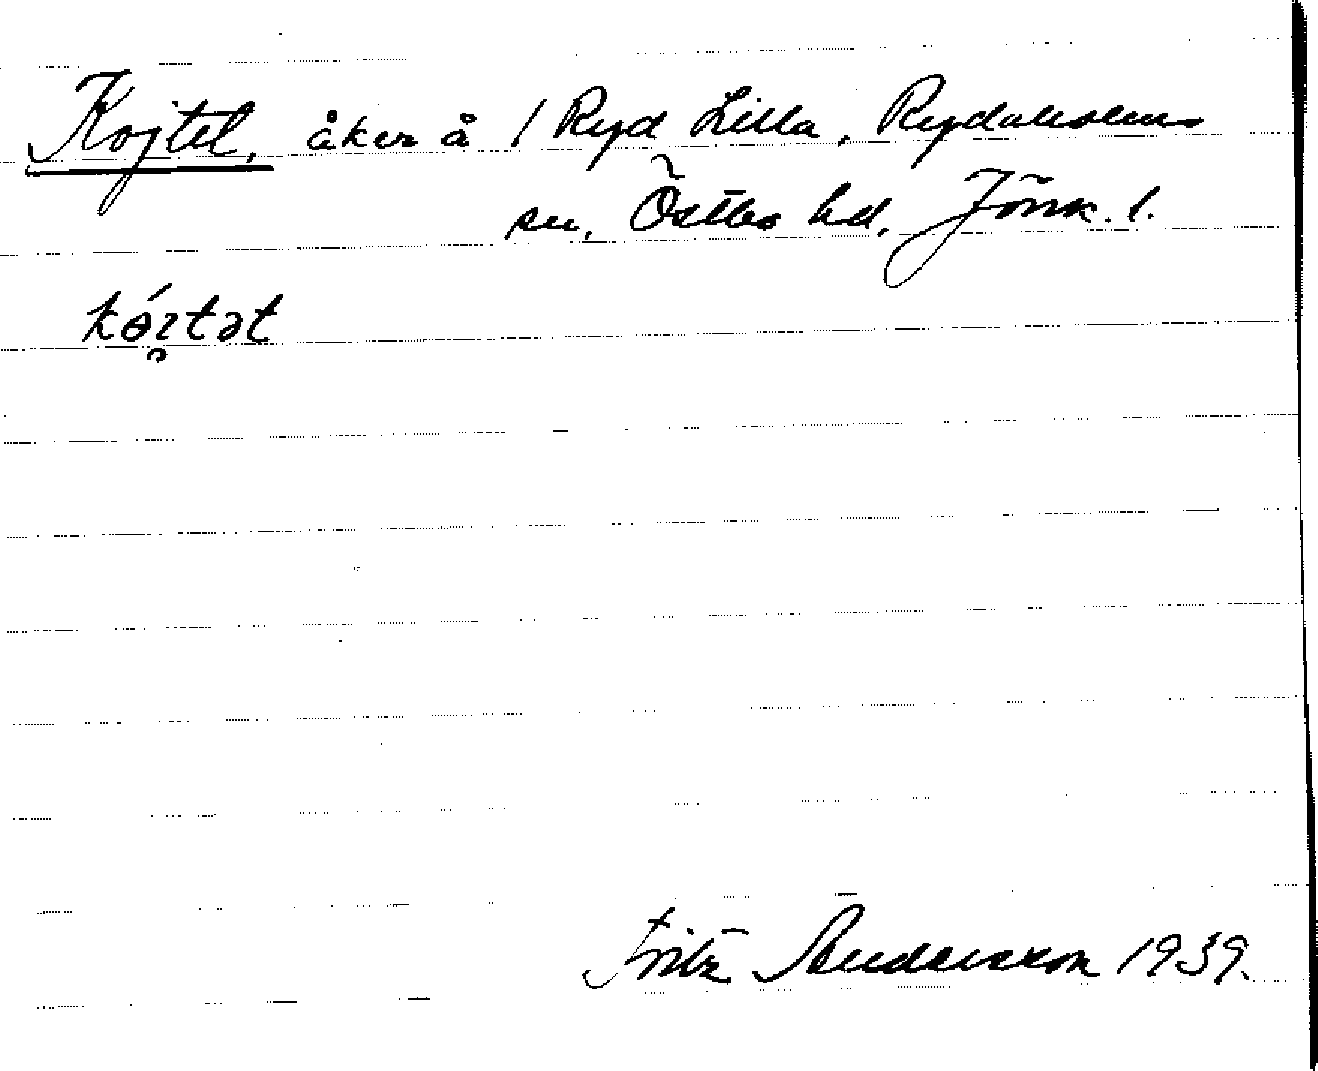 Kojtel, åker å 1 Ryd Lilla, Rydaholms
sn. Östbo hd, Jönk. l.
Fritz Andersson 1939.